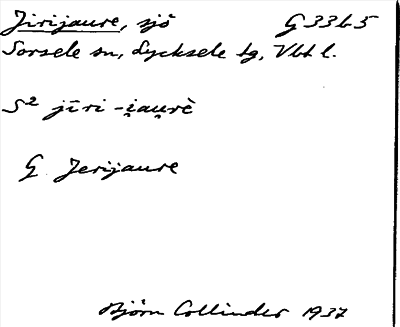 Jirijaure, sjö G 33b5
Sorsele sn, Lycksele tg, Vbtl.
S² jīri-i̯au̯rè
G Jerijaure
Björn Collinder 1937